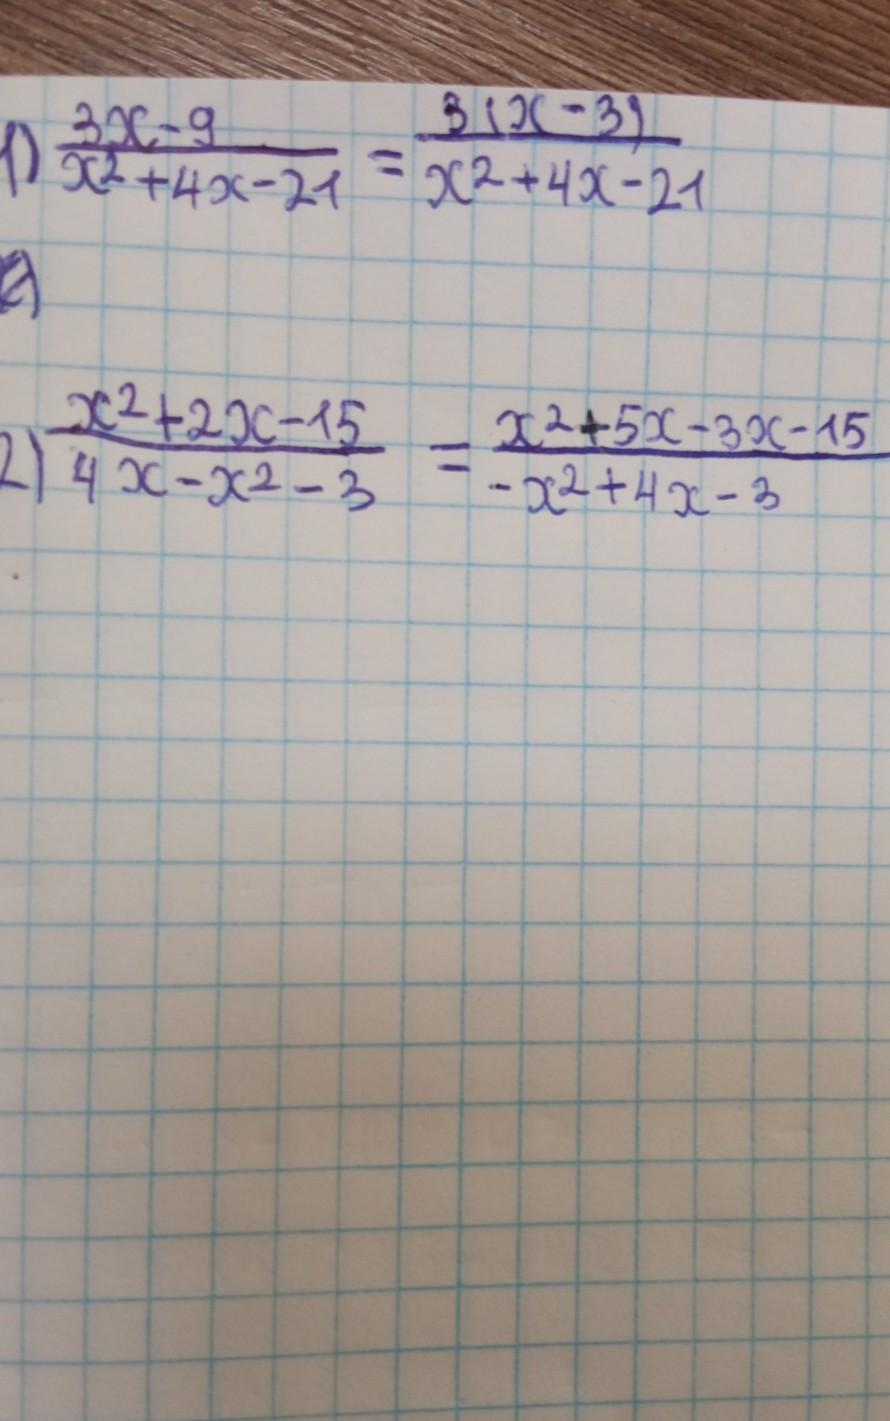 1) (3x-9)/(x²+4x-21) = 3(x-3)/(x²+4x-21)
2)
2) (x²+2x-15)/(4x-x²-3) = (x²+5x-3x-15)/(-x²+4x-3)